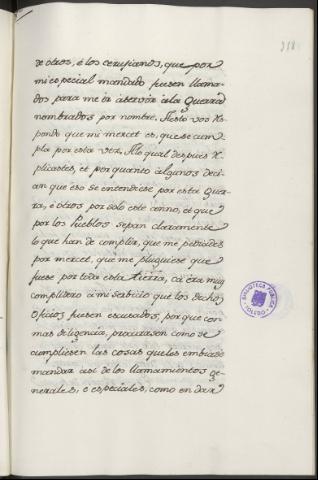 318.
de otros, é los cerujanos, que por
mi especial mandado fuesen llama-
dos para me ir á servir á la Guerra
nombrados por nombre. A esto vos res-
pondo que mi mercet es, que se cum-
pla por esta vez. A lo qual despues re-
plicastes, et por quanto algunos deci-
an que eso se entendiese por esta Guer-
ra, é otros por solo este anno, et que
por los Pueblos sepan claramente
lo que han de complir, que me pediades
por mercet, que me pluguiese que
fuese por toda esta tierra, cá era muy
complidero á mi serbicio que los dechos
Oficios fuesen escusados, por que con
mas deligencia, procurasen como se
cumpliesen las cosas que les embiase
mandar asi de los llamamientos ge-
nerales, e especiales, como en dar
BIBLIOTECA PUBLICA
TOLEDO